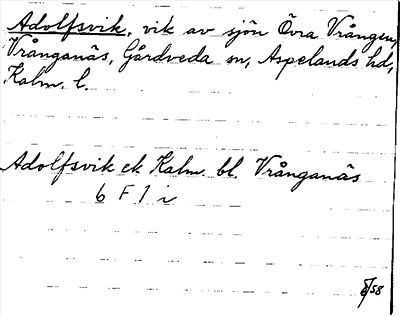 Adolfsvik, vik av sjön Övra Vrången,
Vrånganäs, Gårdveda sn, Aspelands hd,
Kalm. l.
Adolfsvik ek Kalm. bl. Vrånganäs
6 F 1 i
8/58